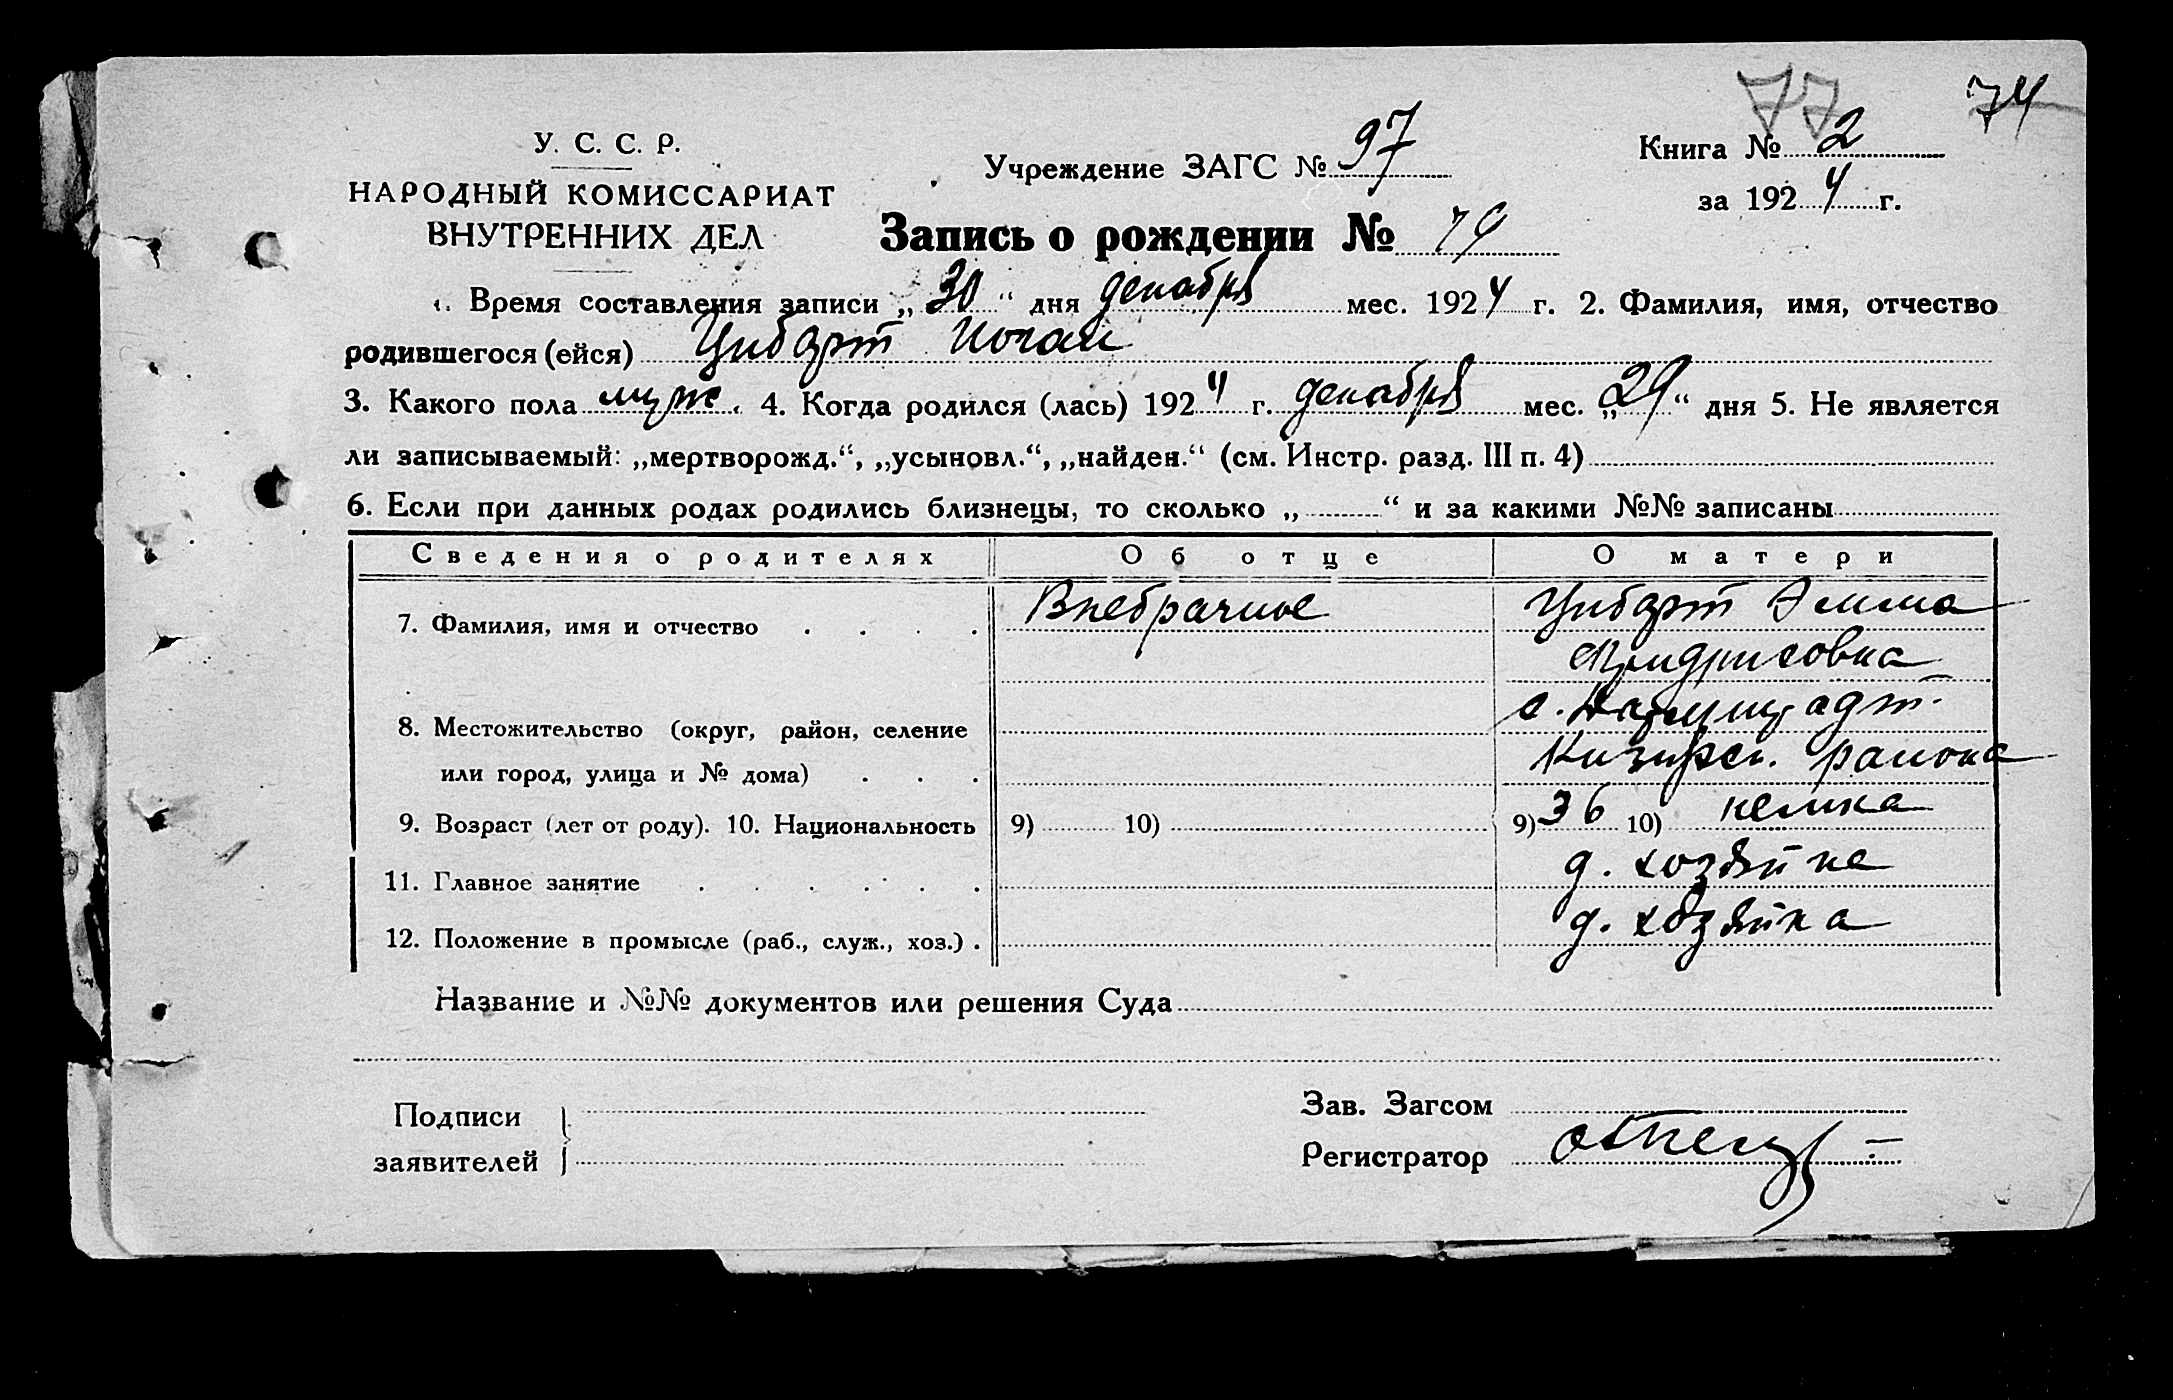 77 74
У. С. С. Р.
НАРОДНЫЙ КОМИССАРИАТ
ВНУТРЕННИХ ДЕЛ
Учреждение ЗАГС № 97
Книга № 2
за 1924 г.
Запись о рождении № 79
1. Время составления записи „30“ дня декабря мес. 1924 г. 2. Фамилия, имя, отчество
родившегося (ейся) Цибарт Иоган
3. Какого пола муж. 4. Когда родился (лась) 1924 г. декабря мес. „29“ дня 5. Не является
ли записываемый: „мертворожд.“, „усыновл.“, „найден.“ (см. Инстр. разд. III п. 4)
6. Если при данных родах родились близнецы, то сколько „ “ и за какими №№ записаны
Сведения о родителях Об отце О матери
7. Фамилия, имя и отчество Внебрачное Цибарт Эмма
Фридриховна
8. Местожительство (округ, район, селение с.
или город, улица и № дома) района
9. Возраст (лет от роду). 10. Национальность 9) 10) 9) 36 10) немка
11. Главное занятие д. хозяйка
12. Положение в промысле (раб., служ., хоз.) д. хозяйка
Название и №№ документов или решения Суда
Подписи
заявителей
Зав. Загсом
Регистратор